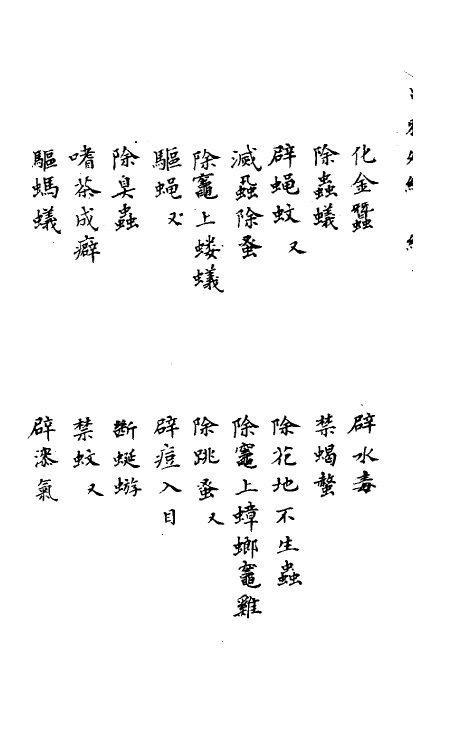 化金蠶　辟水毒
除蟲蟻　禁蝎螫
辟蝇蚊又　除花地不生蟲
滅蝨除蚤　除竈上蟑螂竈雞
除竈上蝼蟻　除跳蚤又
驅蝇又　辟痘入目
除臭蟲　斷蜒蝣
嗜茶成癖　禁蚊又
驅螞蟻　辟漆氣